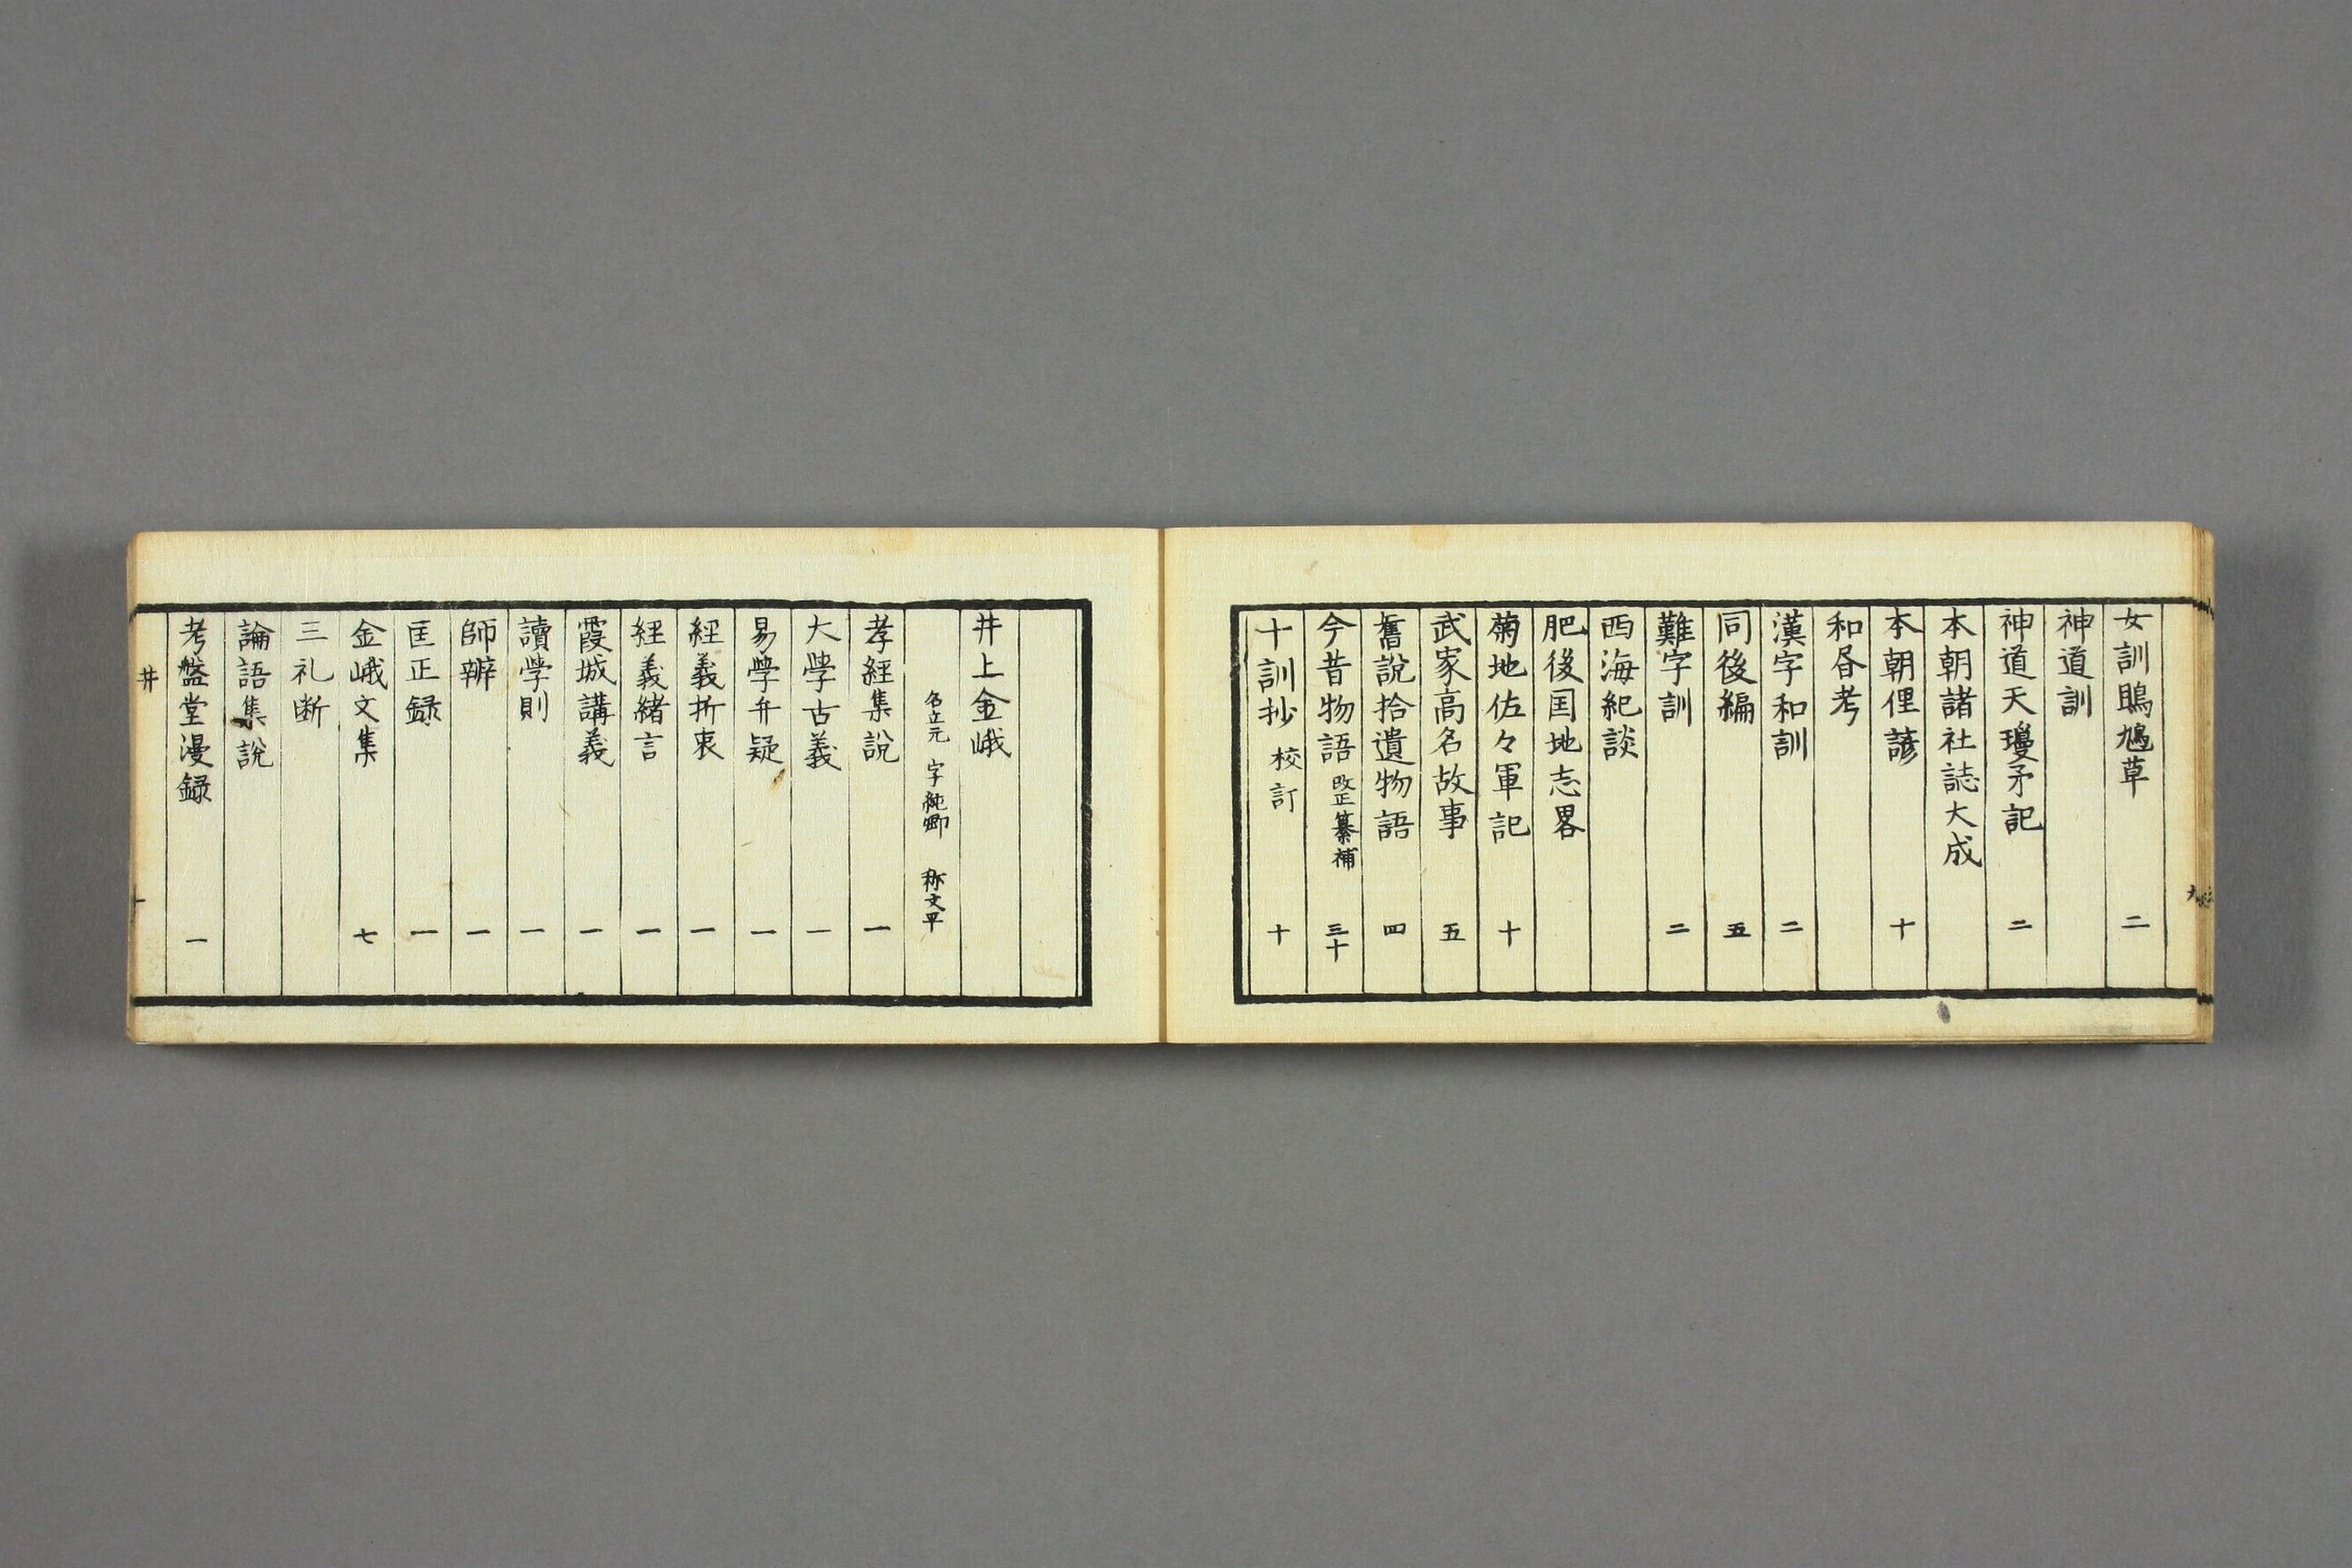 女訓鴡鳩草 二
神道訓
神道天瓊矛記 二
本朝諸社誌大成
本朝俚諺 十
和㕝考
漢字和訓 二
同後編 五
難字訓 二
西海紀談
肥後国地志畧
菊地佐々軍記 十
武家高名故事 五
舊說拾遺物語 四
今昔物語 改正纂補 三十
十訓抄 校訂 十
井上金峨
名立元 字純卿 称文平
孝経集說 一
大学古義 一
易学弁疑 一
経義折衷 一
経義緒言 一
霞城講義 一
讀学則 一
師辨 一
匡正録 一
金峨文集 七
三礼断
論語集說
考盤堂漫録 一
井